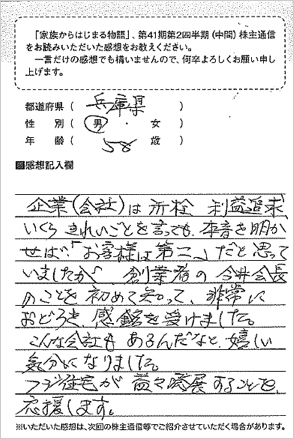 「家族からはじまる物語」、第41期第2四半期(中間)株主通信
をお読みいただいた感想をお教えください。
一言だけの感想でも構いませんので、何卒よろしくお願い申
し上げます。
都道府県( 兵庫県 )
性 別( 男 ・ 女 )
年 齢( 58 歳 )
■感想記入欄
企業(会社)は所栓 利益追求、
いくらきれいごとを言っても、本音を明か
せば「お客様は第二」だと思って
いましたが 創業者の今井会長
のことを初めて知って、非常に
おどろき、感銘を受けました。
こんな会社もあるんだなと、嬉しい
気分になりました。
フジ住宅が益々発展することを、
応援します。
※いただいた感想は、次回の株主通信等でご紹介させていただく場合があります。